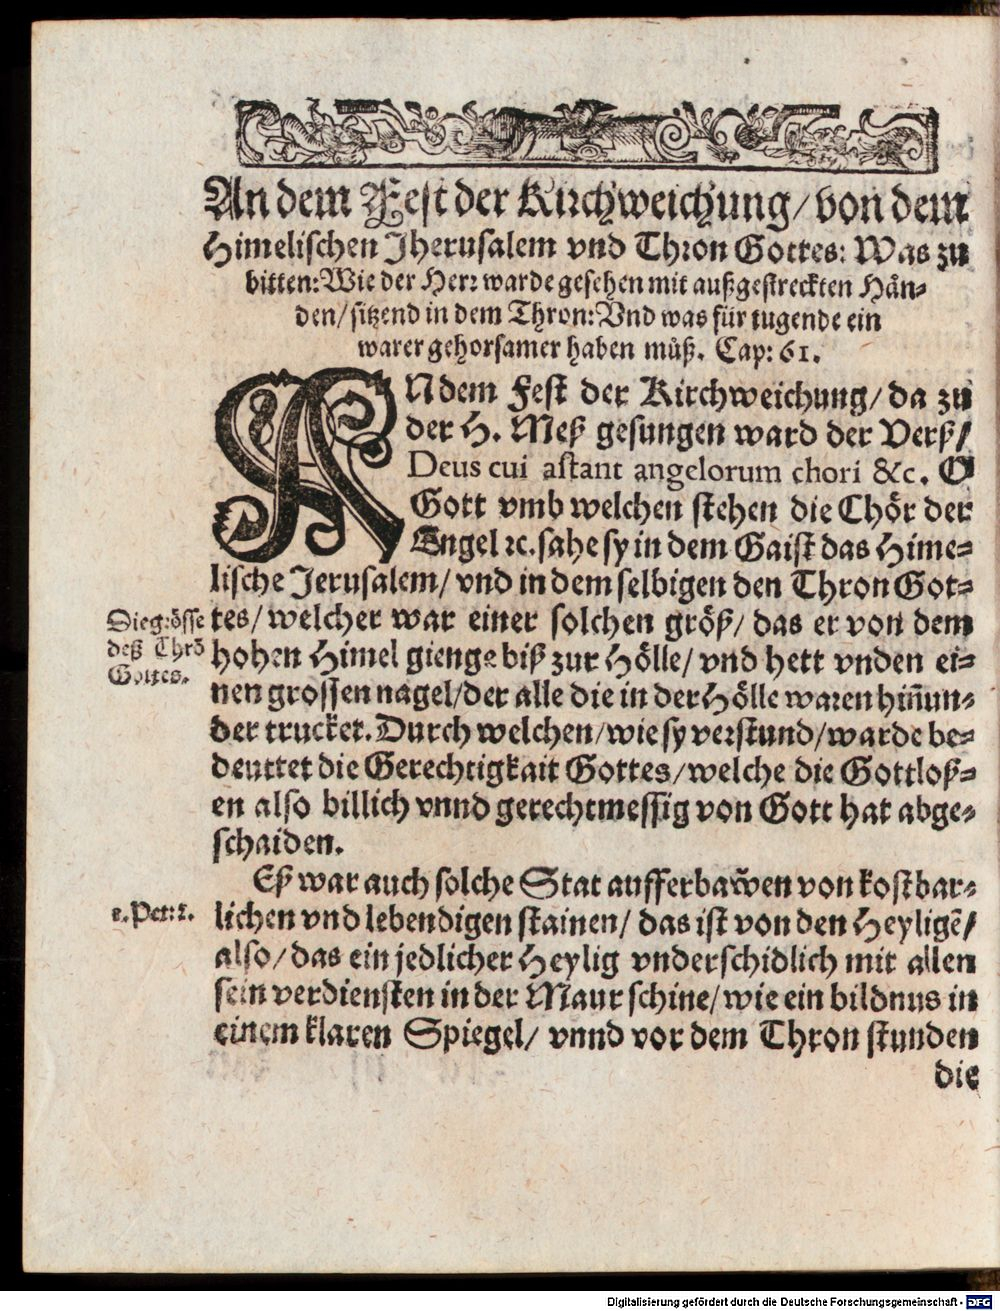 An dem Fest der Kirchweichung/ von dem
Himelischen Jherusalem vnd Thron Gottes: Was zu
bitten: Wie der Herr warde gesehen mit außgestreckten Hän⸗
den/ sitzend in dem Thron: Vnd was für tugende ein
warer gehorsamer haben müß. Cap: 61.
AN dem Fest der Kirchweichung/ da zu
der H. Meß gesungen ward der Verß/
Deus cui astant angelorum chori &c. O
Gott vmb welchen stehen die Chör der
Engel ꝛc. sahe sy in dem Gaist das Hime⸗
lische Jerusalem/ vnd in dem selbigen den Thron Got⸗
Die grösse
deß Thrō
Gottes.
tes/ welcher war einer solchen größ/ das er von dem
hohen Himel gienge biß zur Hölle/ vnd hett vnden ei⸗
nen grossen nagel/ der alle die in der Hölle waren hiñun⸗
der trucket. Durch welchen/ wie sy verstund/ warde be⸗
deuttet die Gerechtigkait Gottes/ welche die Gottloß⸗
en also billich vnnd gerechtmessig von Gott hat abge⸗
schaiden.
Eß war auch solche Stat aufferbaw̃en von kostbar⸗
1. Pet: 2.
lichen vnd lebendigen stainen/ das ist von den Heyligē/
also/ das ein jedlicher Heylig vnderschidlich mit allen
sein verdiensten in der Maur schine/ wie ein bildnus in
einem klaren Spiegel/ vnnd vor dem Thron stunden
die
Digitalisierung gefördert durch die Deutsche Forschungsgemeinschaft - DFG